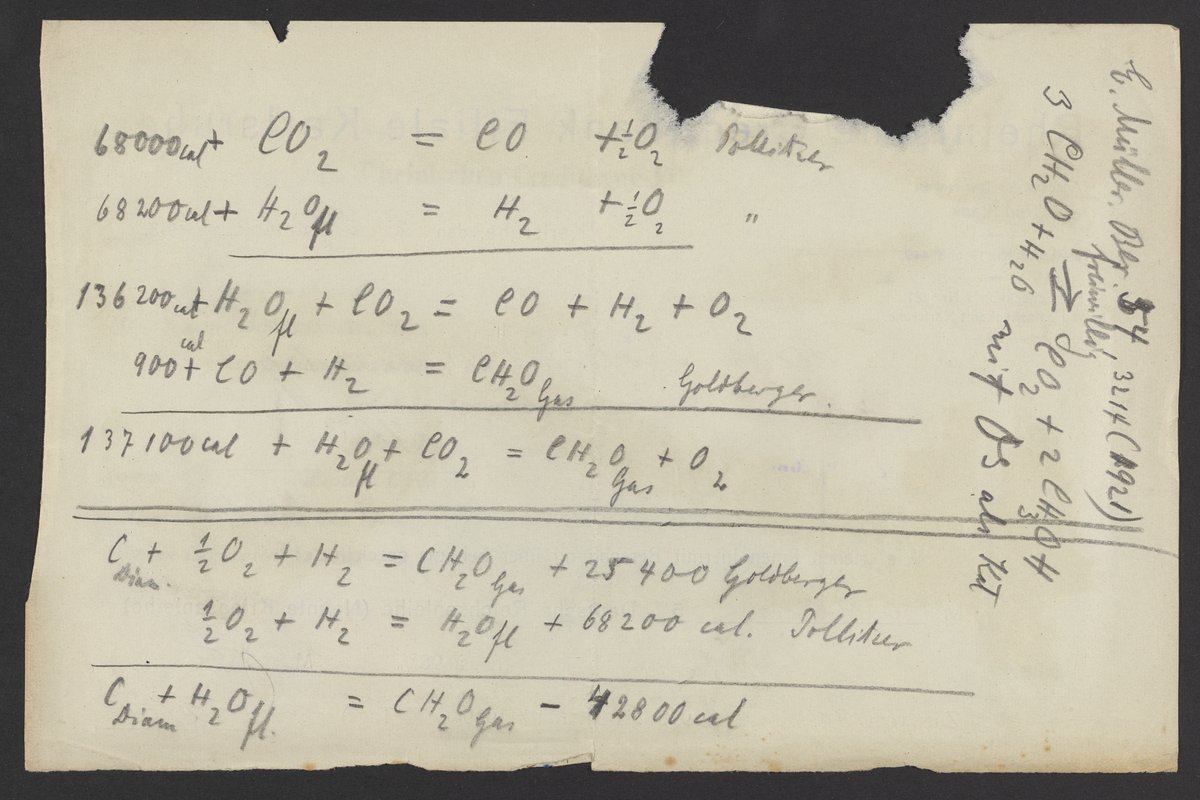 68000 cal + CO2 = CO + ½O2 Pollitzer
68200 cal + H2Ofl = H2 + ½O2 "
136200 cal + H2Ofl + CO2 = CO + H2 + O2
900 cal + CO + H2 = CH2OGas Goldberger.
137100 cal + H2Ofl + CO2 = CH2OGas + O2
CDiam. + ½O2 + H2 = CH2OGas + 25400 Goldberger
½O2 + H2 = H2Ofl + 68200 cal. Pollitzer
CDiam + H2Ofl. = CH2OGas - 42800 cal
E. Müller, Ber. 54, 3214 (1921)
freiwillig
3 CH2O + H2O ⇌ CO2 + 2 CH3OH
mit Os als Kat